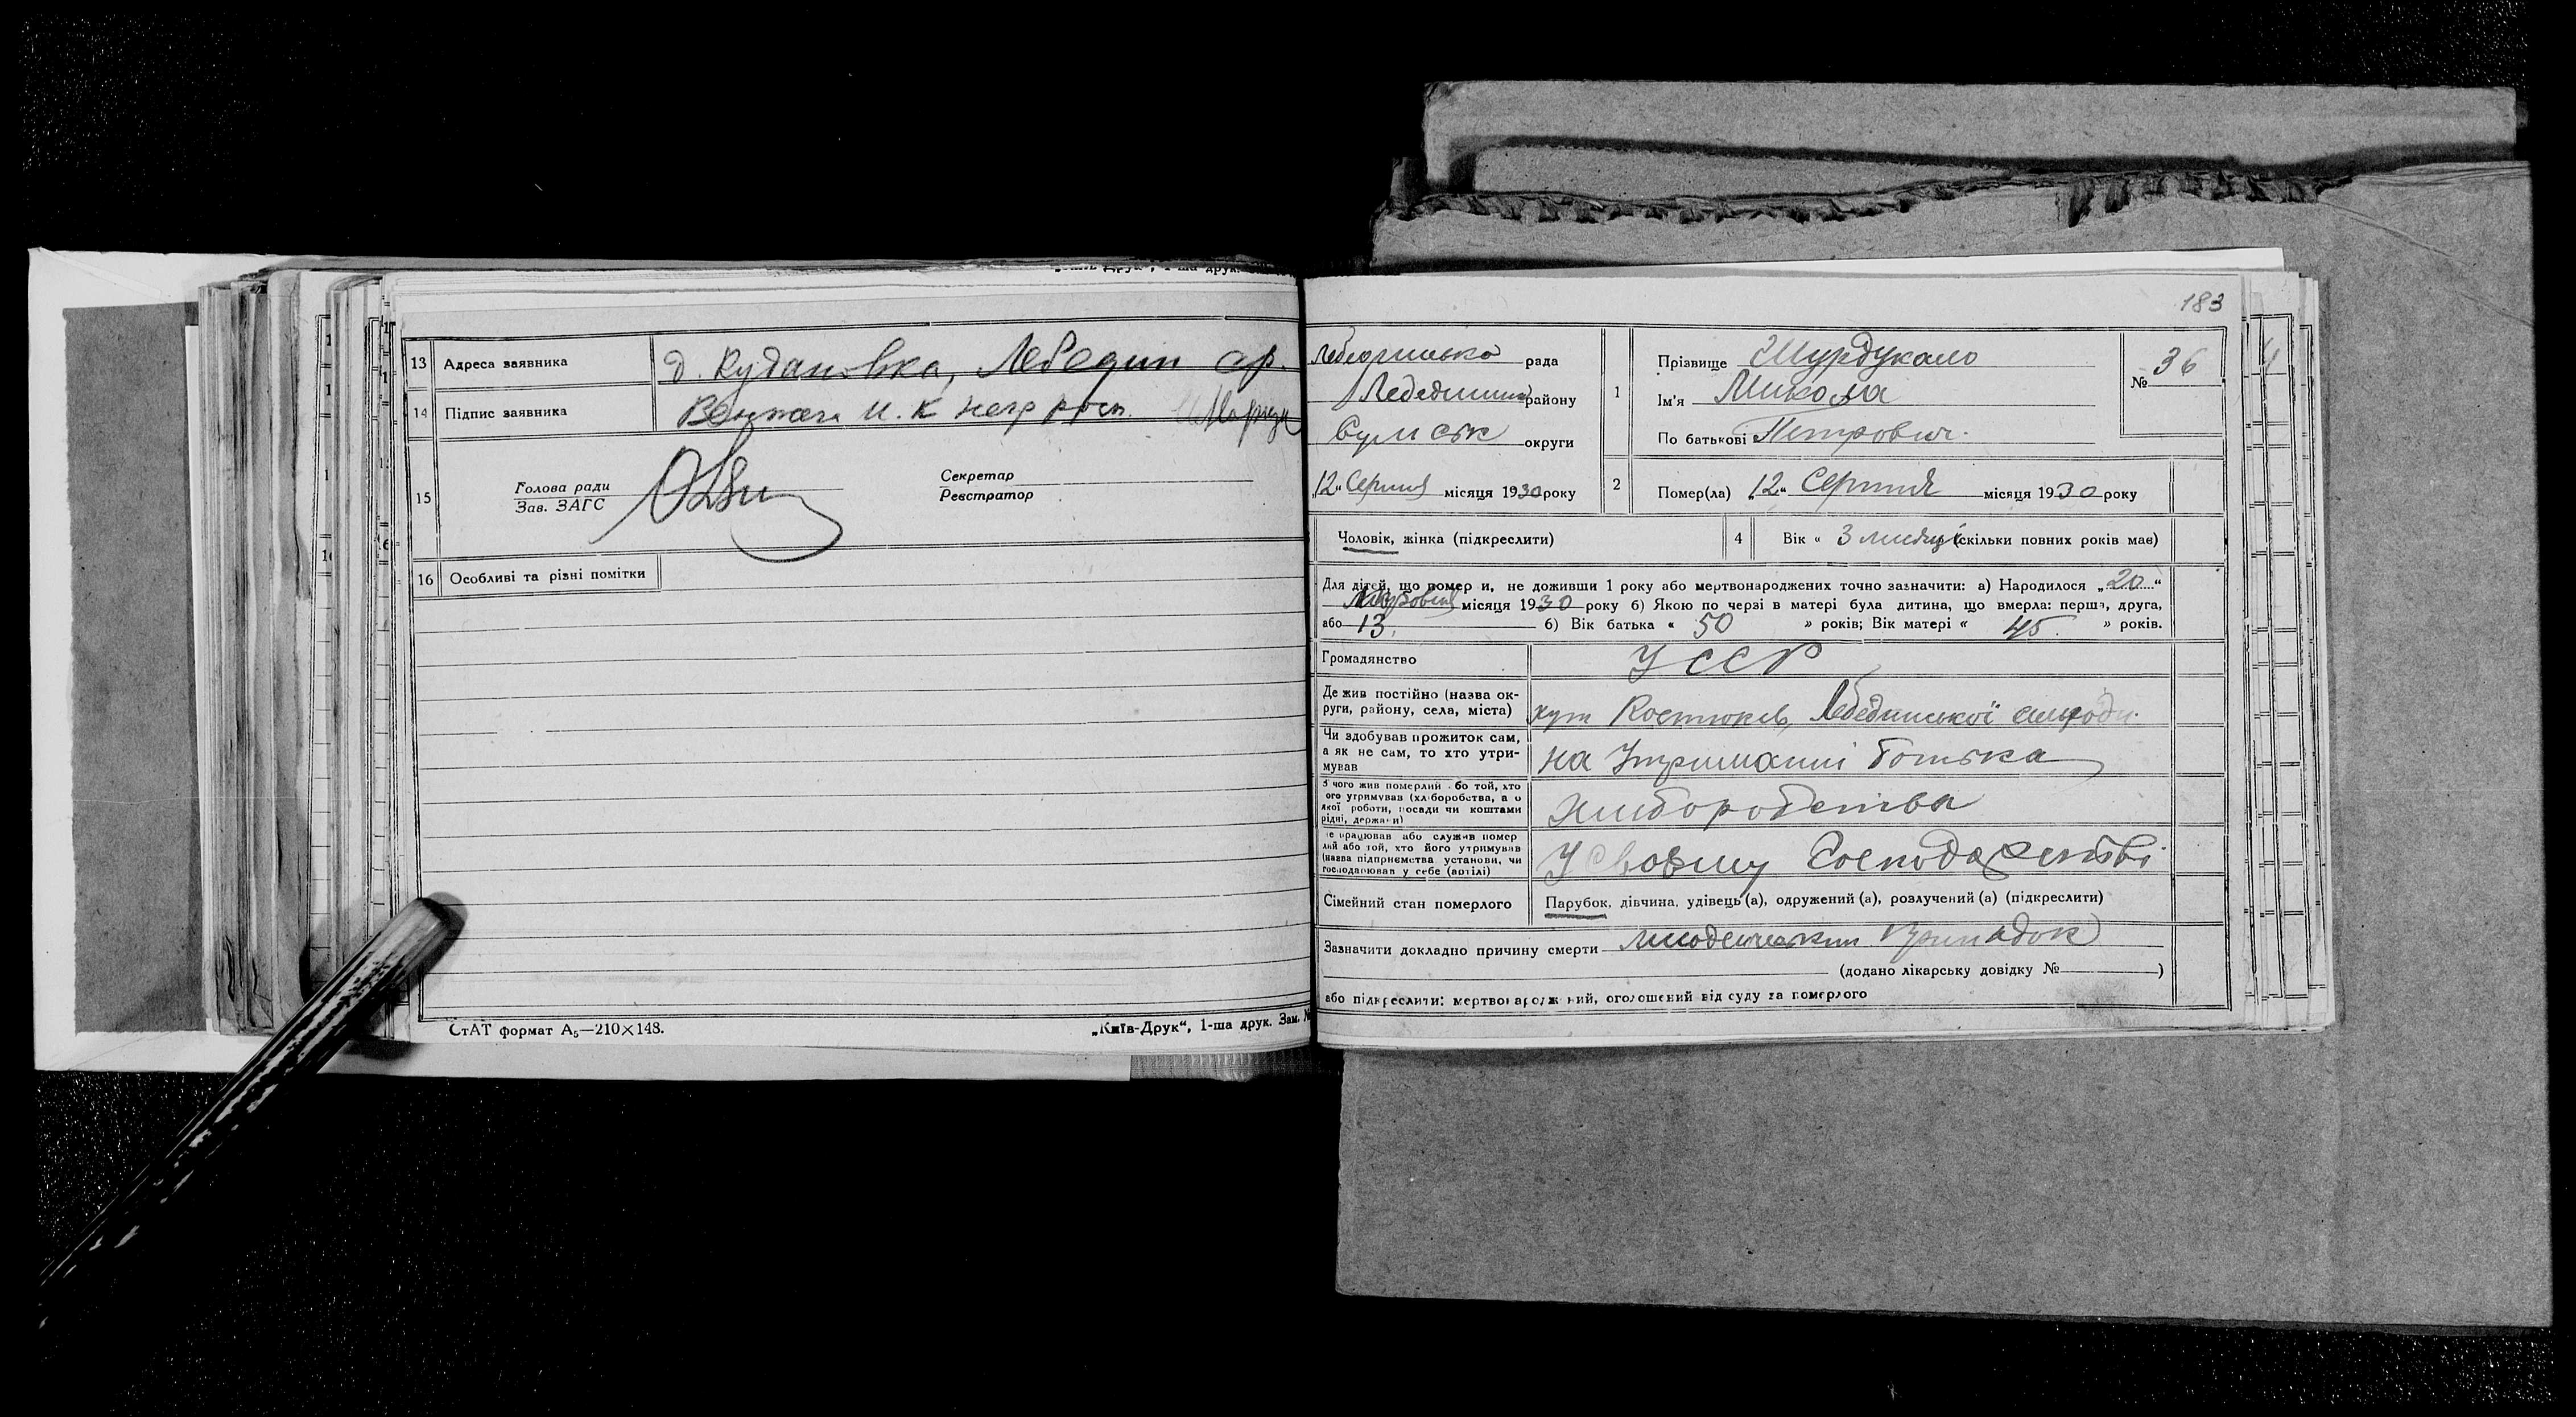 13 Адреса заявника д. Кудановка, Лебедин ср.
14 Підпис заявника И. К негр росп.
15 Голова ради
Зав. ЗАГС
Секретар
Реєстратор
16 Особливі та різні помітки
СтАТ формат А₅—210×148.
„Київ-Друк“, 1-ша друк. Зам. №
183
рада
району
Сумськ округи
„12„ Серпня місяця 1930 року
1 Прізвище Шурдукало
Ім'я Микола
По батькові Петрович.
№ 36
2 Помер(ла) „12„ Серпня місяця 1930 року
Чоловік, жінка (підкреслити)
4 Вік « 3 місяці (скільки повних років має)
Для дітей, що померли, не доживши 1 року або мертвонароджених точно зазначити: а) Народилося „20“
місяця 1930 року б) Якою по черзі в матері була дитина, що вмерла: перша, друга,
або 13. б) Вік батька « 50 » років; Вік матері « 45. » років.
Громадянство УССР
Де жив постійно (назва ок-
руги, району, села, міста) хут Костюків, Лебединської сільради.
Чи здобував прожиток сам,
а як не сам, то хто утри-
мував на Утриманні батька
З чого жив померлий або той, хто
його утримував (хліборобства, а о
якої роботи, посади чи коштами
рідні, держави) Хліборобства
Де працював або служив помер
лий або той, хто його утримував
(назва підприємства установи, чи
господарював у себе (артілі) У Своєму Господарстві
Сімейний стан померлого Парубок, дівчина, удівець (а), одружений (а), розлучений (а) (підкреслити)
Зазначити докладно причину смерти Припадок
(додано лікарську довідку № )
або підкреслити: мертвонароджений, оголошений від суду за померлого